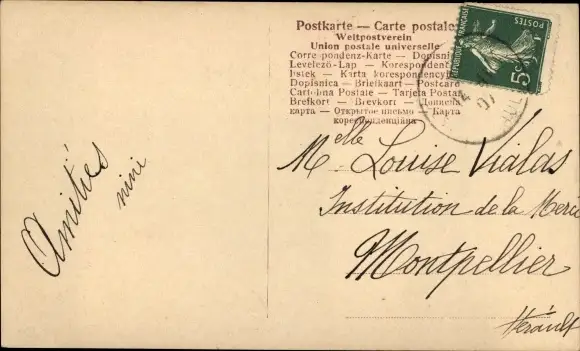 Postkarte — Carte postale
Weltpostverein
Union postale universelle
Correspondenz-Karte — Dopisnic
Levelező-Lap — Korespondent
Listek — Karta korespondencyjn
Dopisnica — Briefkaart — Postcard
Cartolina Postale — Tarjeta Postal
Brefkort — Brevkort — Цописна
карта — Открытое письмо — Карта
кореспонденціина
POSTES
FRANÇAISE
5c
07
Mlle Louise Vialas
Institution de la Merci
Montpellier
Hérault
Amitiés
nini